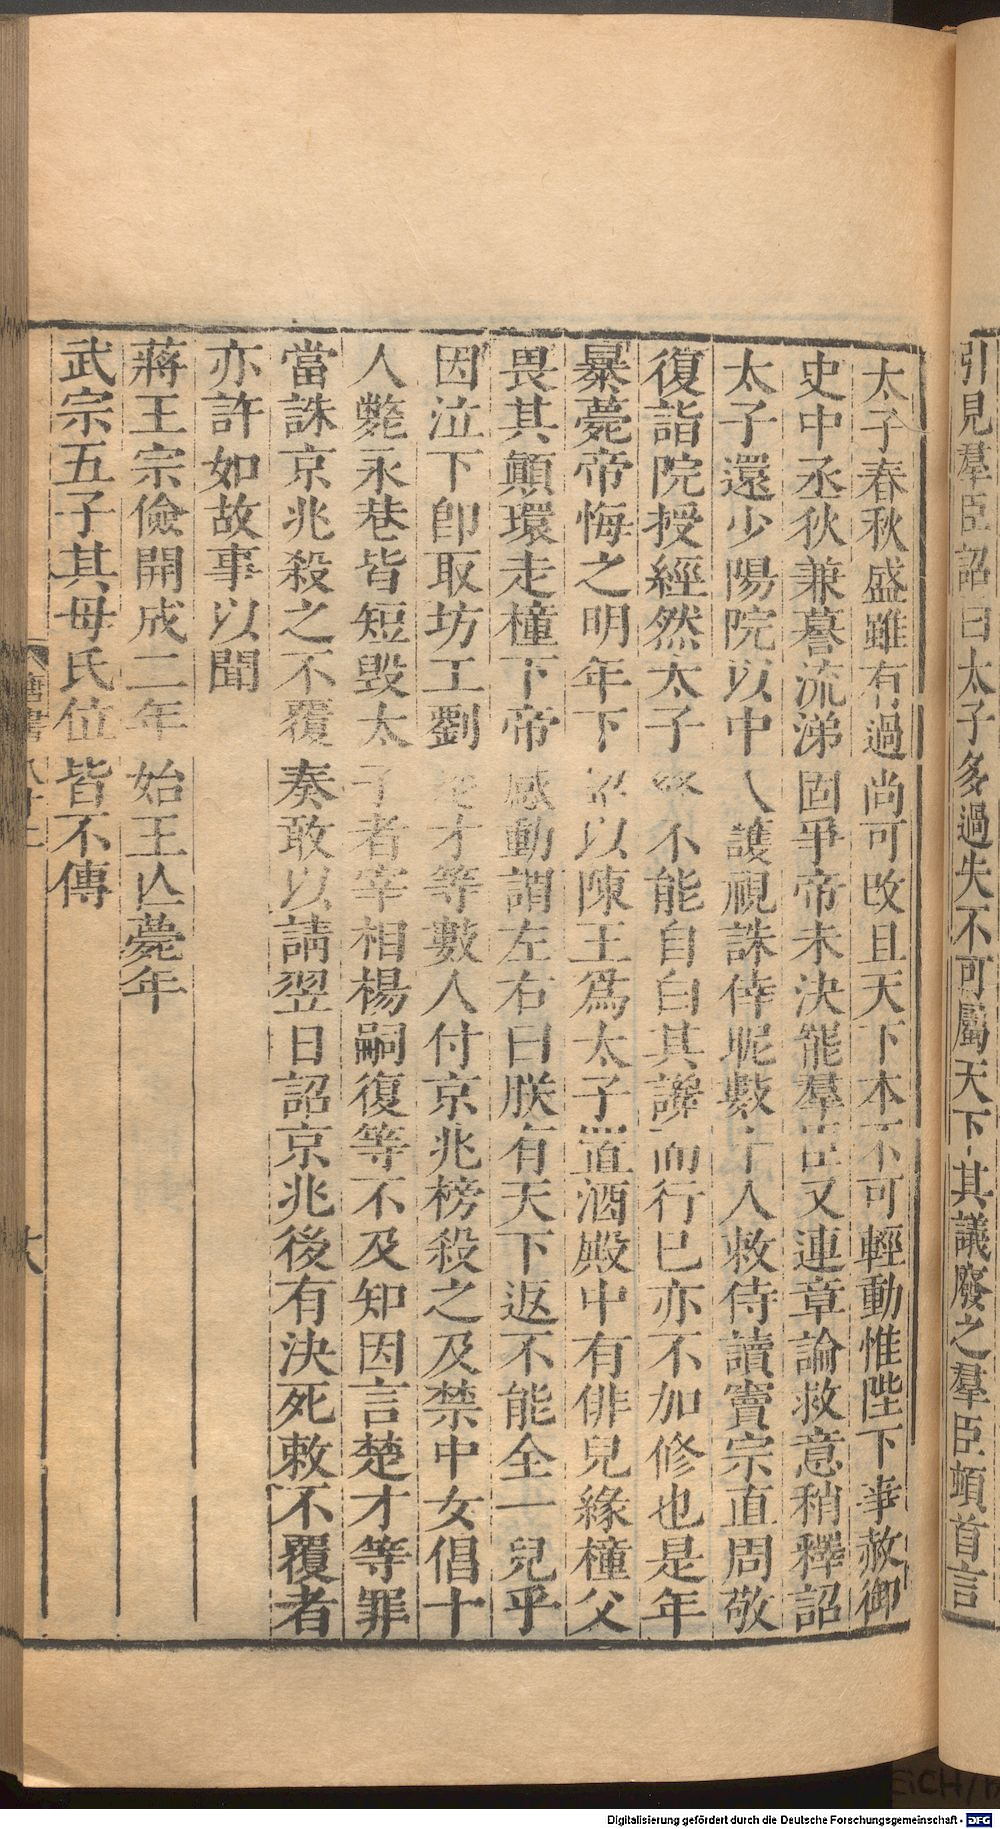 引見羣臣詔曰太子多過失不可屬天下其議廢之羣臣頓首言
太子春秋盛雖有過尚可改且天下本不可輕動惟陛下幸赦御
史中丞狄兼謩流涕固爭帝未決罷羣臣又連章論救意稍釋詔
太子還少陽院以中人護視誅倖昵數十人敕侍讀竇宗直周敬
復詣院授經然太子終不能自白其讒而行已亦不加修也是年
暴薨帝悔之明年下詔以陳王爲太子置酒殿中有俳兒緣橦父
畏其顚環走橦下帝感動謂左右曰朕有天下返不能全一兒乎
因泣下卽取坊工劉楚才等數人付京兆榜殺之及禁中女倡十
人斃永巷皆短毀太子者宰相楊嗣復等不及知因言楚才等罪
當誅京兆殺之不覆奏敢以請翌日詔京兆後有決死敕不覆者
亦許如故事以聞
蔣王宗儉開成二年始王亡薨年
武宗五子其母氏位皆不傳
唐書八十二
六
Digitalisierung gefördert durch die Deutsche Forschungsgemeinschaft - DFG